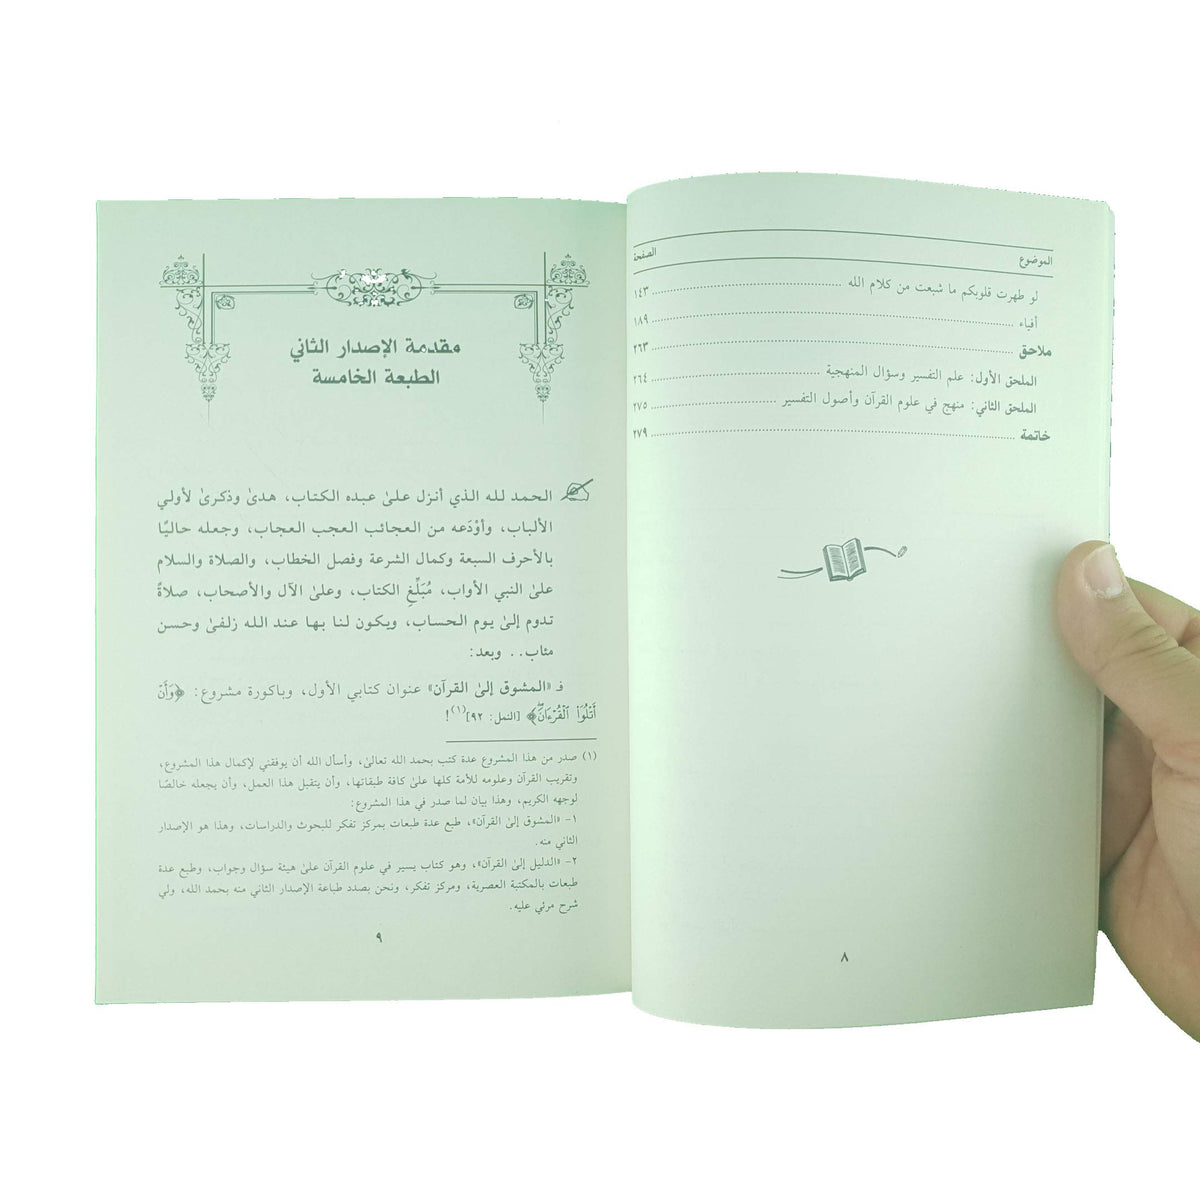 الموضوع الصفحة
لو طهرت قلوبكم ما شبعت من كلام الله ........ ١٤٣
أفياء ........ ١٨٩
ملاحق ........ ٢٦٣
الملحق الأول: علم التفسير وسؤال المنهجية ........ ٢٦٤
الملحق الثاني: منهج في علوم القرآن وأصول التفسير ........ ٢٧٥
خاتمة ........ ٢٧٩
٨
مقدمة الإصدار الثاني
الطبعة الخامسة
الحمد لله الذي أنزل علىٰ عبده الكتاب، هدىٰ وذكرىٰ لأولي
الألباب، وأوْدَعه من العجائب العجب العجاب، وجعله حاليًا
بالأحرف السبعة وكمال الشرعة وفصل الخطاب، والصلاة والسلام
علىٰ النبي الأواب، مُبَلِّغِ الكتاب، وعلىٰ الآل والأصحاب، صلاةً
تدوم إلىٰ يوم الحساب، ويكون لنا بها عند الله زلفىٰ وحسن
مئاب.. وبعد:
فـ «المشوق إلىٰ القرآن» عنوان كتابي الأول، وباكورة مشروع: ﴿وَأَنْ
أَتْلُوَا۟ ٱلْقُرْءَانَۖ﴾ [النمل: ٩٢](١)!
(١) صدر من هذا المشروع عدة كتب بحمد الله تعالىٰ، وأسأل الله أن يوفقني لإكمال هذا المشروع،
وتقريب القرآن وعلومه للأمة كلها علىٰ كافة طبقاتها، وأن يتقبل هذا العمل، وأن يجعله خالصًا
لوجهه الكريم، وهذا بيان لما صدر في هذا المشروع:
١- «المشوق إلىٰ القرآن»، طبع عدة طبعات بمركز تفكر للبحوث والدراسات، وهذا هو الإصدار
الثاني منه.
٢- «الدليل إلىٰ القرآن»، وهو كتاب يسير في علوم القرآن علىٰ هيئة سؤال وجواب، وطبع عدة
طبعات بالمكتبة العصرية، ومركز تفكر، ونحن بصدد طباعة الإصدار الثاني منه بحمد الله، ولي
شرح مرئي عليه.
٩